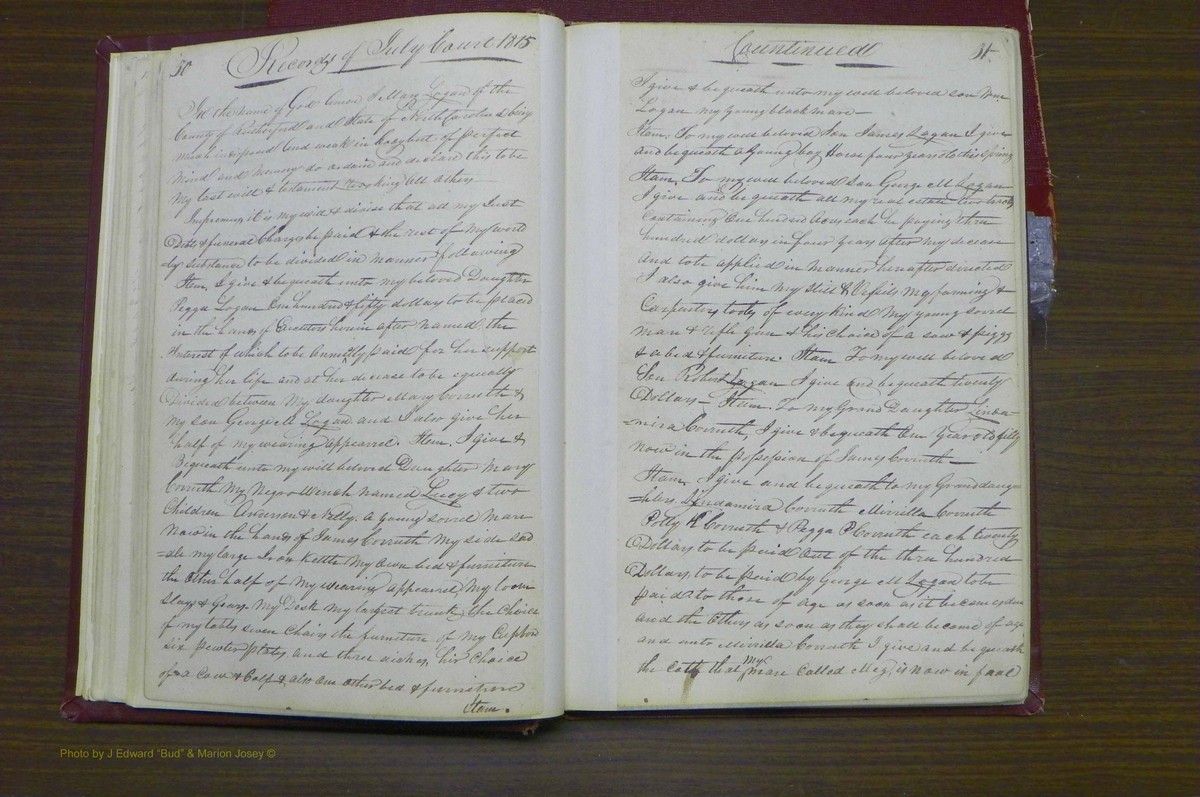 50 Records of July Court 1815
In the name of God Amen I Mary Logan of the
County of Rutherford and State of North Carolina being
much indisposed and weak in body but of perfect
mind and memory do ordain and declare this to be
my last will & testament revoking all others
Imprimis it is my will & divise that all my Just
Debts & funeral Charges be paid & the rest of my world
-ly substance to be divided in manner following
Item. I give & bequeath unto my beloved Daughter
Pegga Logan One hundred & fifty dollars to be placed
in the hands of Executors herein after named the
Interest of which to be Annually paid for her support
during her life and at her decease to be equally
Divided between My daughter Mary Corruth &
my son George M Logan and I also give her
half of my wearing appearel. Item. I give &
Bequeath unto my will beloved Daughter Mary
Corruth My Negro Wench named Lucy & two
Children Anderson & Nelly. A young sorrel Mare
Now in the hands of James Corruth My side Sad
=dle my large Iron Kettle My Own bed & furniture
the Other half of My wearing appearel, My loom
Slays & Gears. My Desk My largest trunk, the Choice
of my tables seven Chairs the furniture of my Cupbord
six pewter plates and three dishes, his Choice
of a Cow & Calf & also One other bed & furniture
Item.
Countinued 51
I give & bequeath unto my well beloved son Wm
Logan my young black mare—
Item. To my well beloved Son James Logan I give
and bequeath a young bay Horse four years old this Spring
Item. To my well beloved Son George M Logan
I give and bequeath all my real estate two tracts
Containing One hundred Acres each he paying three
hundred dollars in four years after my decease
and to be applied in Manner hereafter directed
I also give him My Still & Vessels My farming &
Carpenters tools of every kind My young sorrel
mare & rifle gun & his Choice of a sow & piggs
& a bed & furniture. Item To my well beloved
Son Robert Logan I give and bequeath twenty
Dollars— Item. To my Grand Daughter Linda=
=mira Corruth, I give & bequeath One Year old filly
now in the possession of James Corruth—
Item. I give and bequeath to my Grand daugh
=ters Lindamira Corruth Mirrilla Corruth
Polly K Corruth & Pegga P Corruth each twenty
Dollars to be paid Out of the three hundred
Dollars, to be paid by George M Logan to be
paid to those of age as soon as it becomes due
and the Others as soon as they shall become of age
and unto Mirrilla Corruth I give and bequeath
the Colt that my mare Called Meg, is now in foal
Photo by J Edward "Bud" & Marion Josey ©